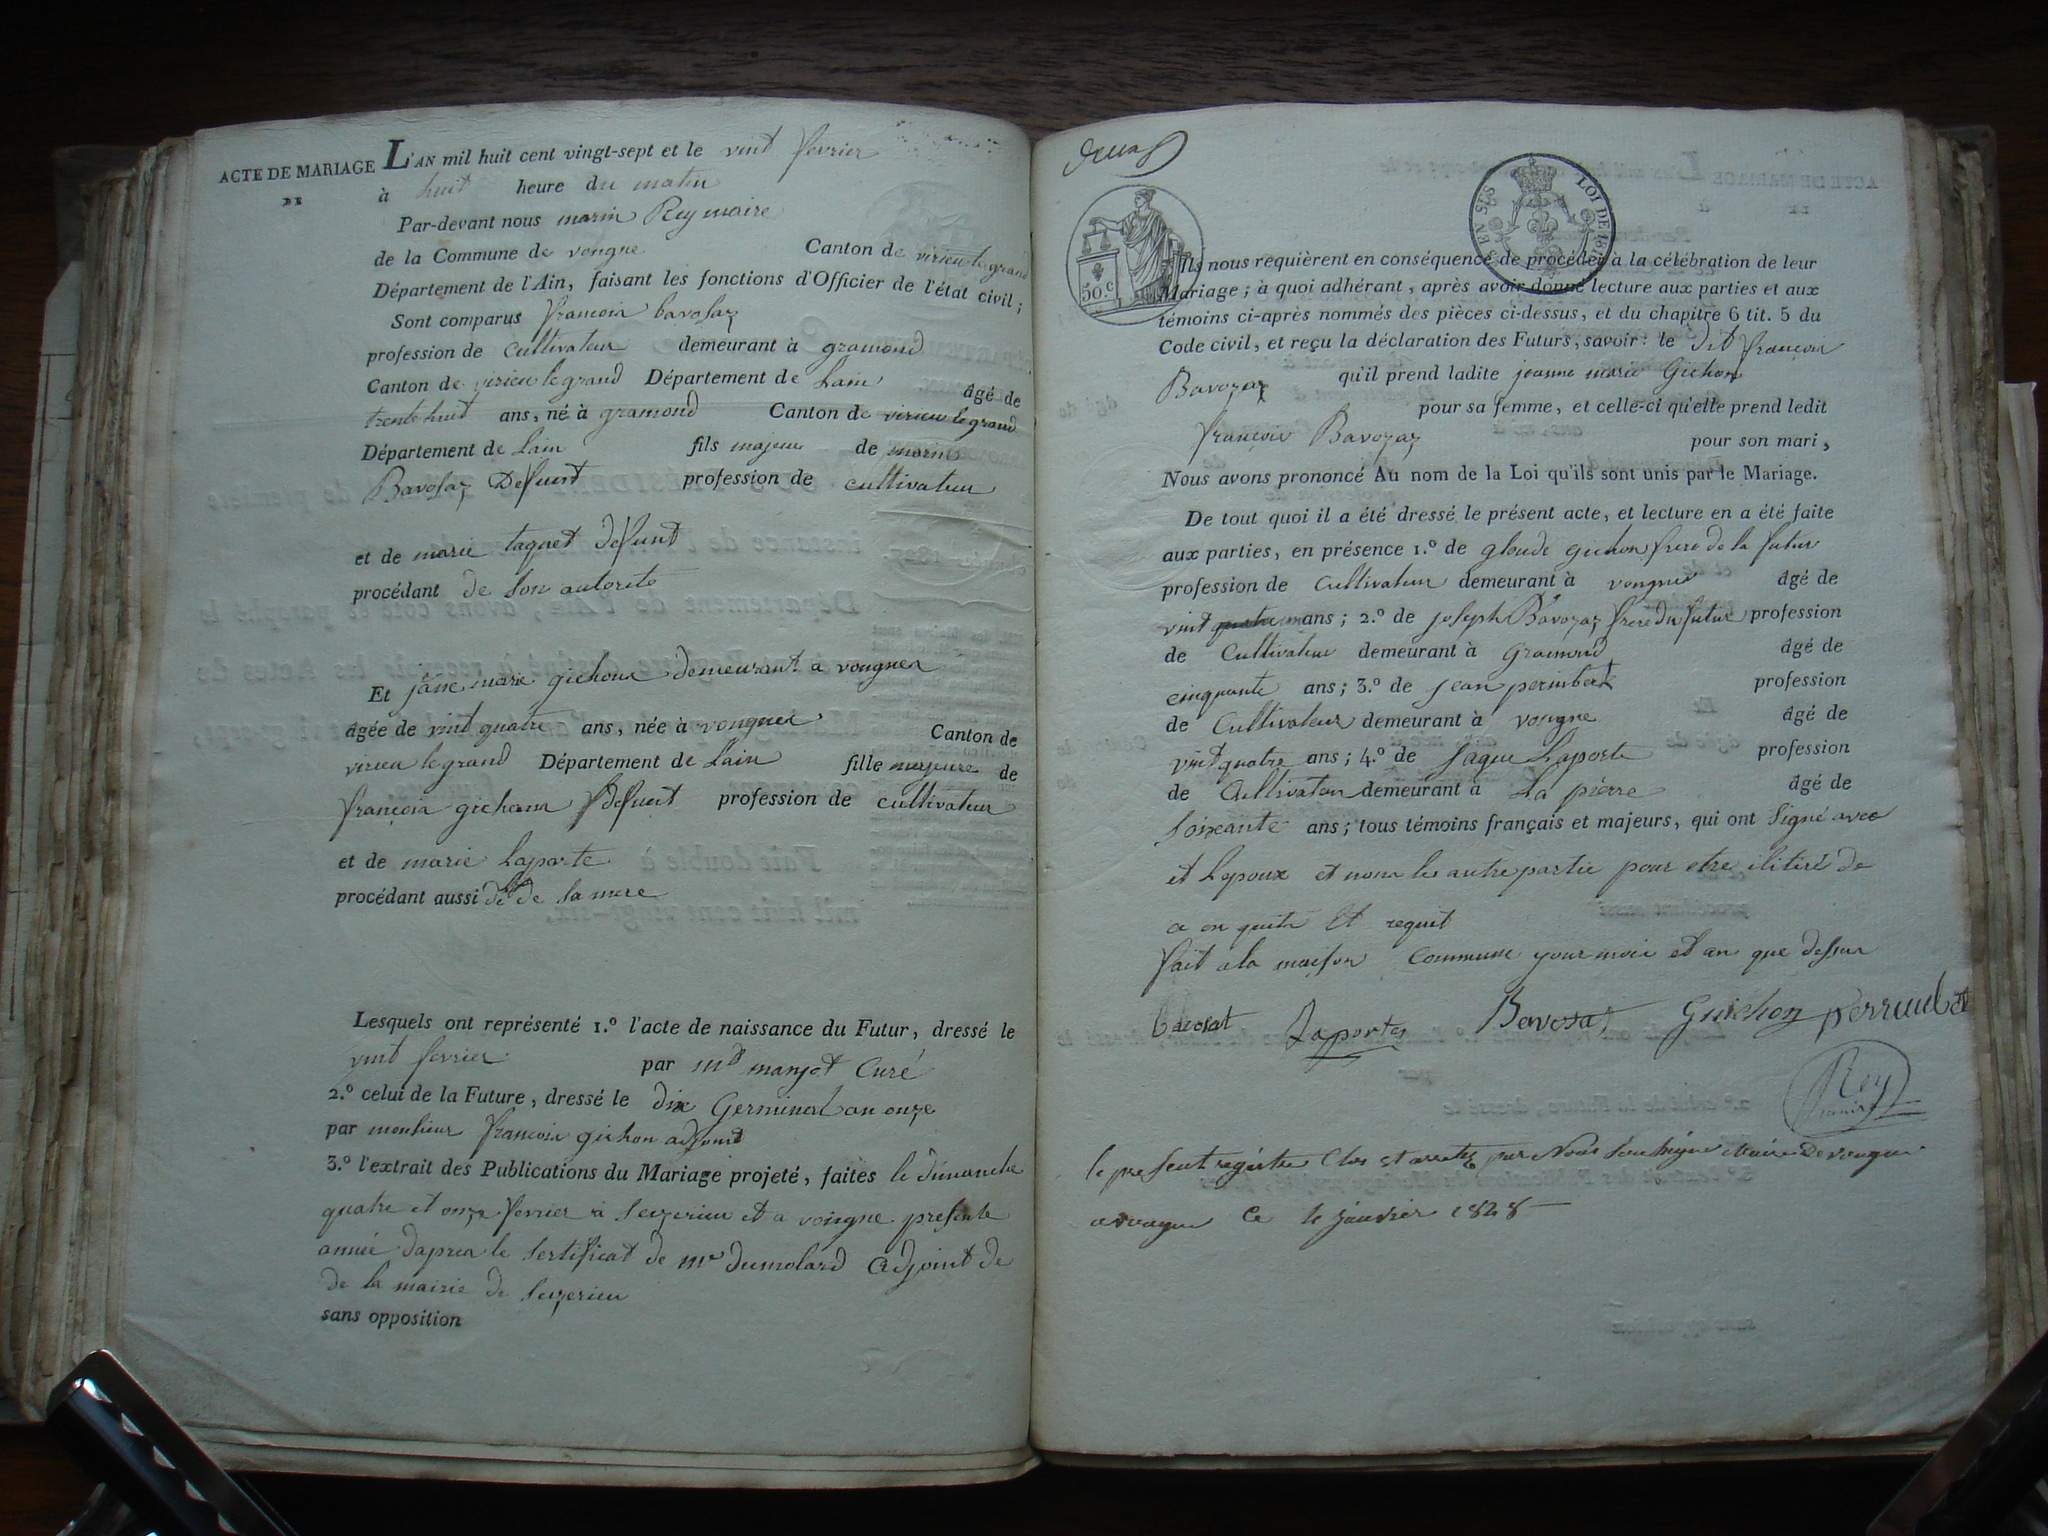 ACTE DE MARIAGE L'AN mil huit cent vingt-sept et le vint fevrier
à huit heure du matin
Par-devant nous marin Rey maire
de la Commune de vongne Canton de virieu le grand
Département de l'Ain, faisant les fonctions d'Officier de l'état civil;
Sont comparus françois bavosaz
profession de cultivateur demeurant à gramond
Canton de virieu le grand Département de Lain âgé de
trente huit ans, né à gramond Canton de virieu le grand
Département de Lain fils majeur de marin
Bavosaz Defunt profession de cultivateur
et de marie taquet defunt
procédant de son autorité
Et jane marie gichon demeurant a vongnes
âgée de vint quatre ans, née à vongnes Canton de
virieu le grand Département de Lain fille majeure de
françois gichon defunt profession de cultivateur
et de marie Laporte
procédant aussi de de sa mere
Lesquels ont représenté 1.º l'acte de naissance du Futur, dressé le
vint fevrier par mr manjot Curé
2.º celui de la Future, dressé le dix Germinal an onze
par monsieur francois gichon adjoint
3.º l'extrait des Publications du Mariage projeté, faites le dimanche
quatre et onze fevrier a seyzerieu et a vongne presente
année daprea le sertificat de mr dumolard adjoint de
de la mairie de seyzerieu
sans opposition
50.c
LOI DE
EN SUS
Ils nous requièrent en conséquence de procéder à la célébration de leur
Mariage; à quoi adhérant, après avoir donné lecture aux parties et aux
témoins ci-après nommés des pièces ci-dessus, et du chapitre 6 tit. 5 du
Code civil, et reçu la déclaration des Futurs, savoir: le dit françois
Bavozaz qu'il prend ladite jeanne marie Gichon
pour sa femme, et celle-ci qu'elle prend ledit
françois Bavozaz pour son mari,
Nous avons prononcé Au nom de la Loi qu'ils sont unis par le Mariage.
De tout quoi il a été dressé le présent acte, et lecture en a été faite
aux parties, en présence 1.º de gloude gichon frere de la futur
profession de Cultivateur demeurant à vongnes âgé de
vint ans; 2.º de joseph Bavozaz frere du futur profession
de Cultivateur demeurant à Gramond âgé de
cinquante ans; 3.º de jean perinbert profession
de Cultivateur demeurant à vongne âgé de
vint quatre ans; 4.º de jaque Laporte profession
de Cultivateur demeurant à La pierre âgé de
soixante ans; tous témoins français et majeurs, qui ont signé avec
et Lepoux et nom les autre partie pour etre ilitiré de
a en quita et requit
fait a la maison Commune jour moir et an que dessus
bavosat Laporte Bavosaz Guichon perrimbert
Rey
maire
le present registre Clos et arreté par Nous soussigné Maire de vongne
a vongne Ce 1 janvier 1828